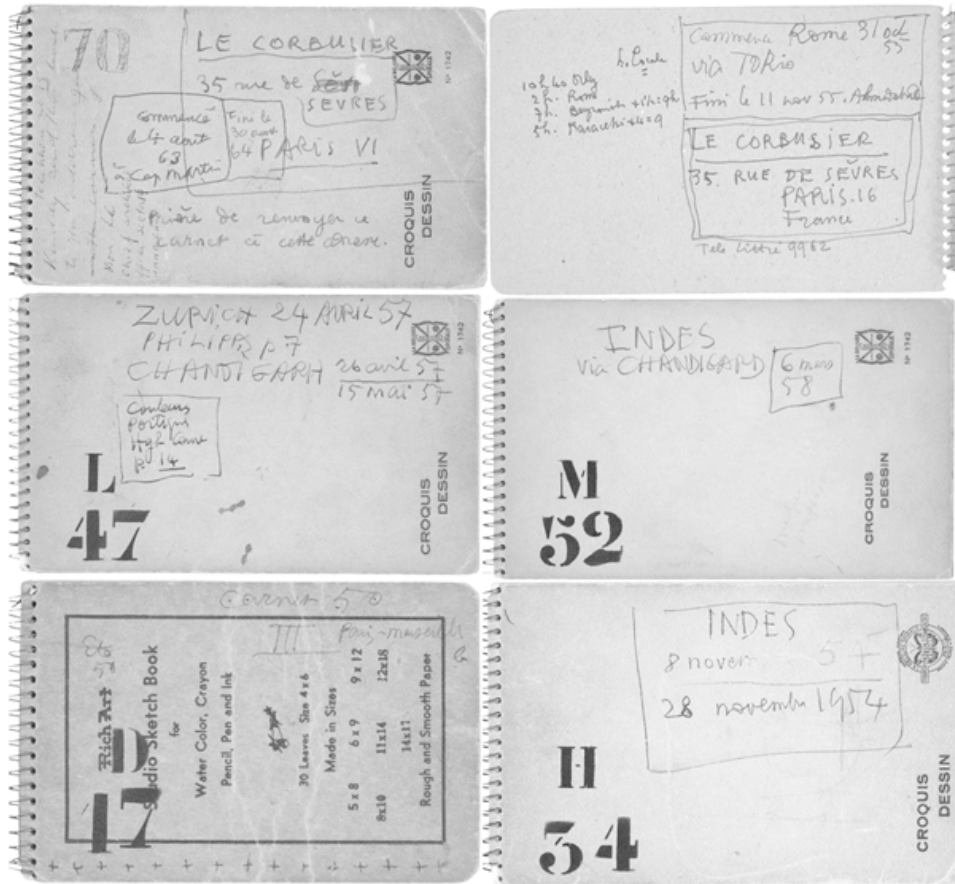 70
LE CORBUSIER
35 rue de
SEVRES
PARIS VI
commencé
le 4 août
63
à Cap Martin
Fini le
30
64
Prière de renvoyer ce
carnet à cette adresse.
CROQUIS
DESSIN
N° 1742
Commencé Rome 31 oct
55
via TOKio
Fini le 11 nov 55. Ahmedabad
10h 40 Orly
2h. Rome
7h. Beyrouth
5h. Karachi
LE CORBUSIER
35. RUE DE SÈVRES
PARIS.16
France
Tele Littré 9962
ZURICH 24 AVRIL 57
PHILIPPS p 7
CHANDIGARH 26 avril 57
15 mai 57
Couleurs
Portique
High Court
P. 14
L
47
CROQUIS
DESSIN
N° 1742
INDES
via CHANDIGARD
6 mars
58
M
52
CROQUIS
DESSIN
N° 1742
Carnet 50
III
Ete
50
Rich Art
D
17
Studio Sketch Book
for
Water Color, Crayon
Pencil, Pen and Ink
30 Leaves Size 4 x 6
Made in Sizes
5 x 8 6 x 9 9 x 12
8x10 11x14 12x18
14x11
Rough and Smooth Paper
INDES
8 novem 54
28 novembre 1954
H
34
CROQUIS
DESSIN